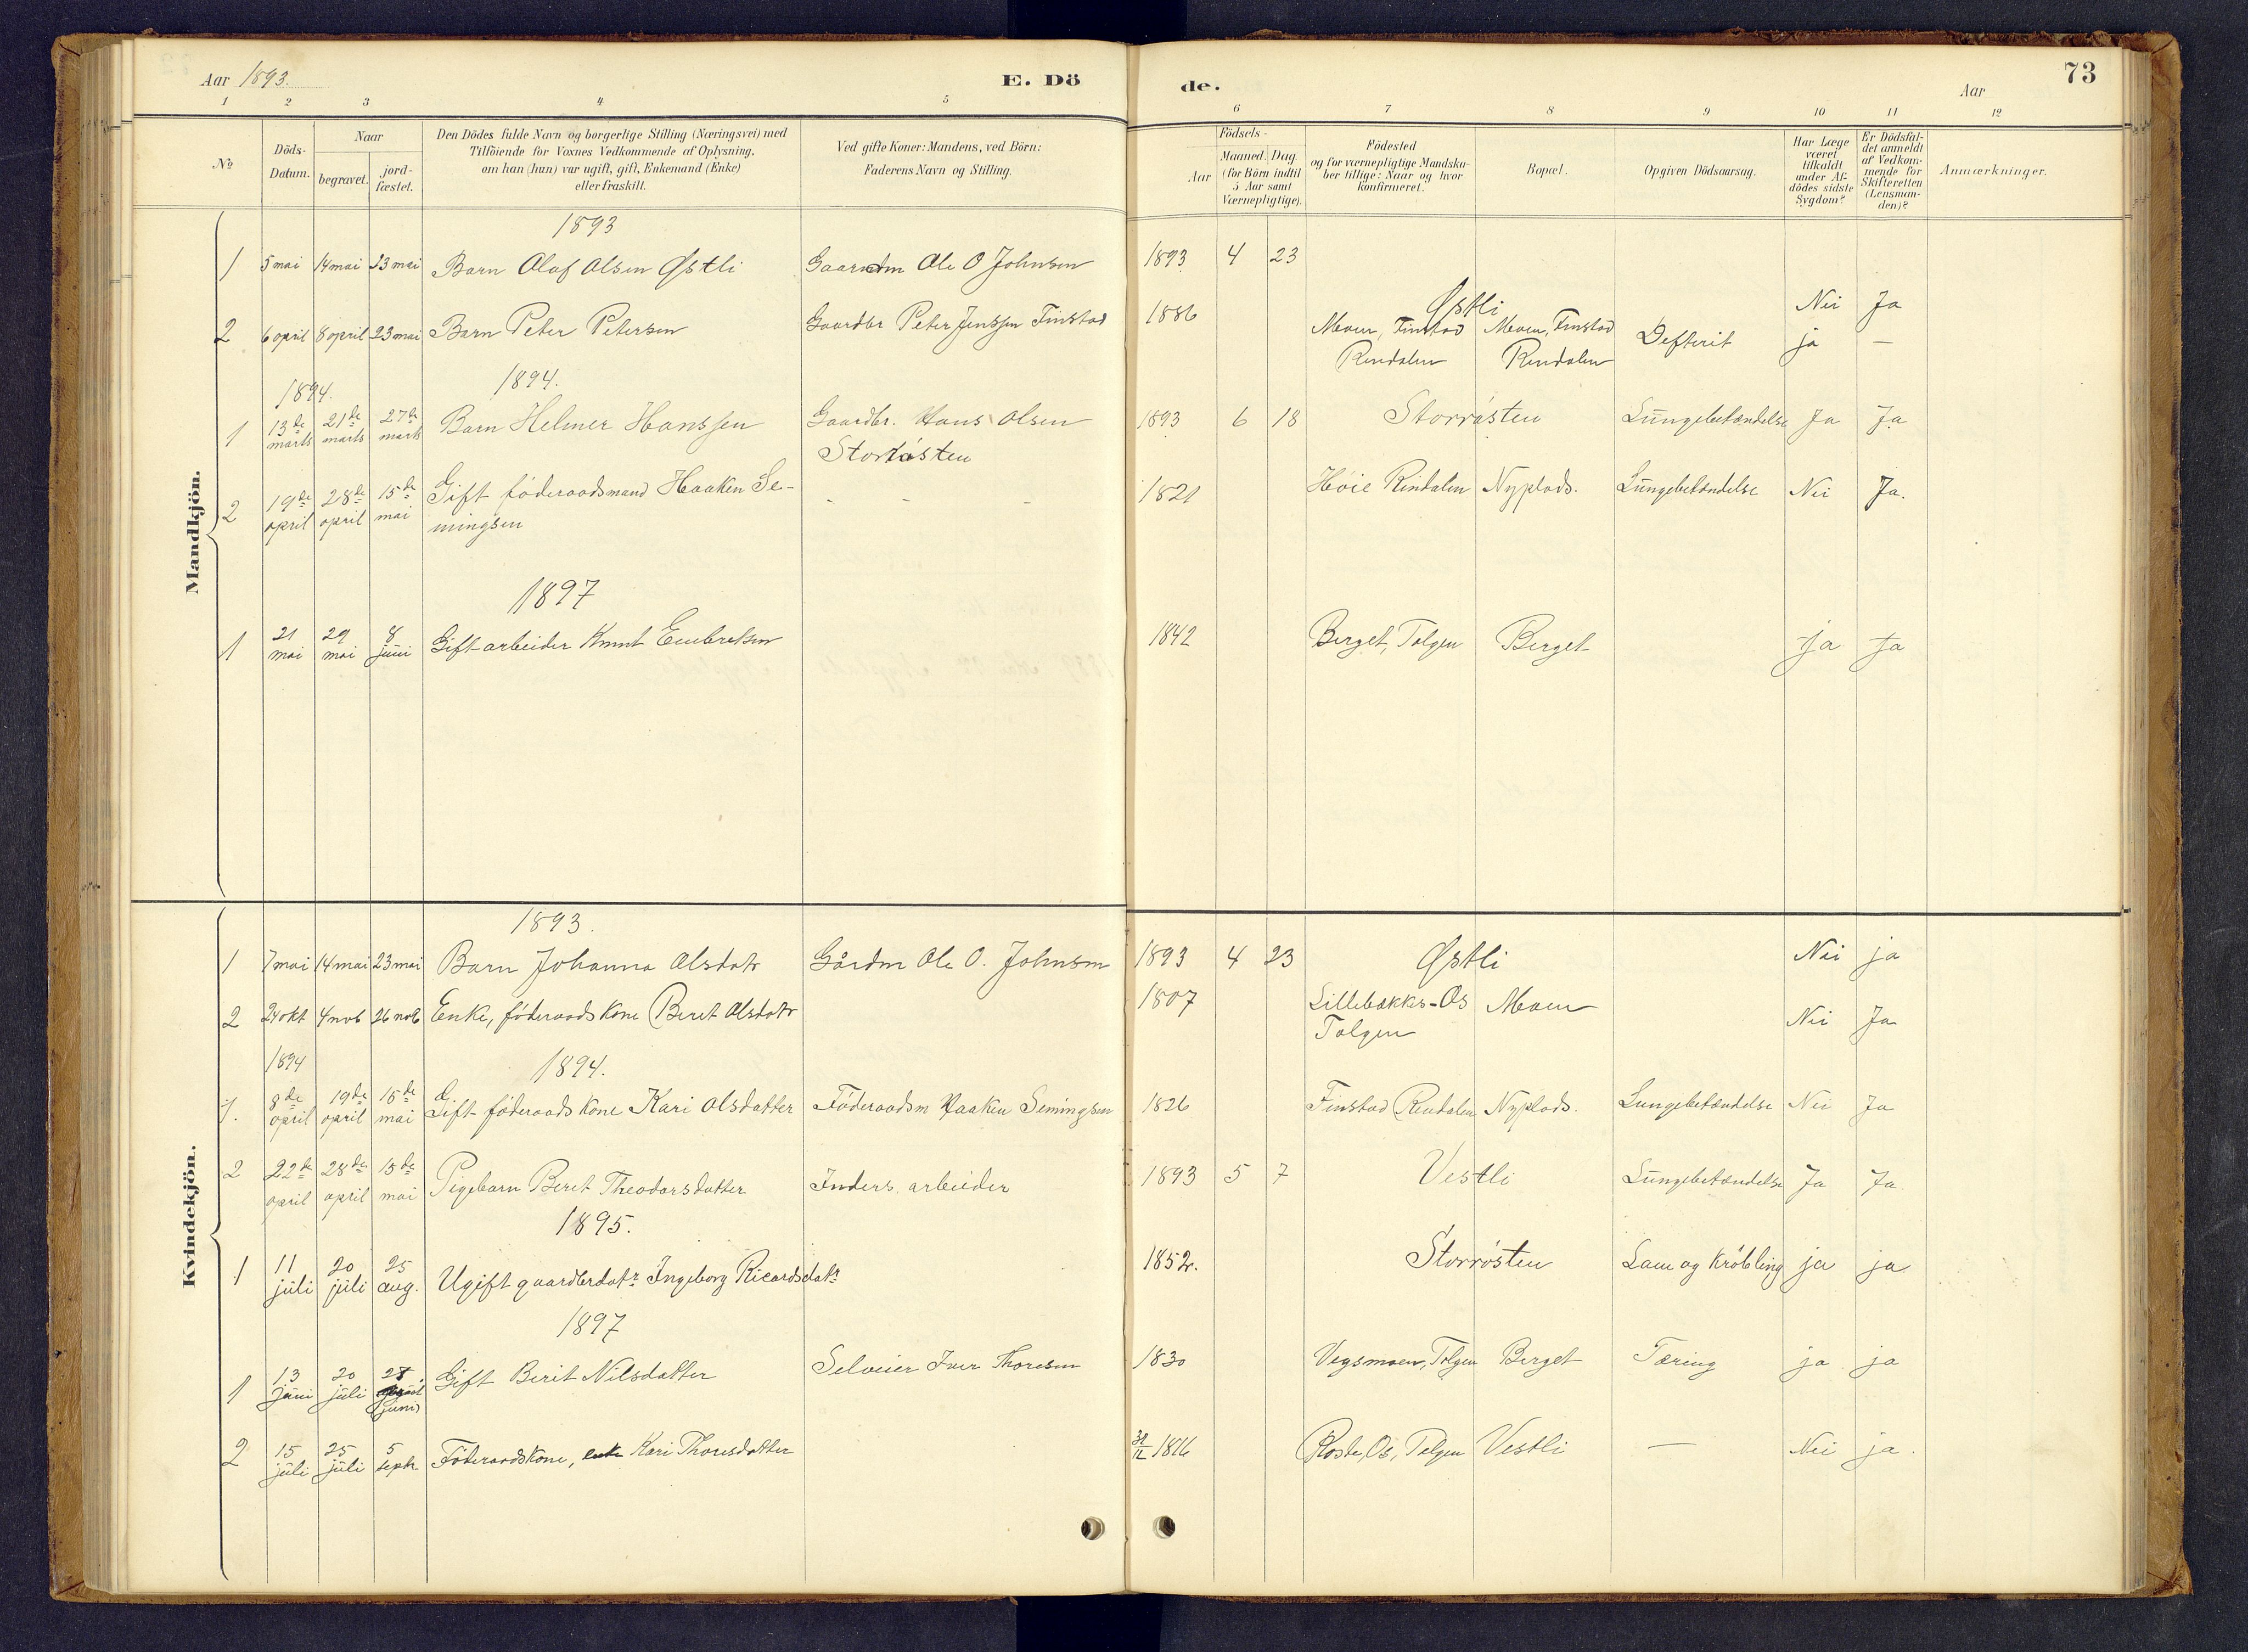 Aar 1893.
E. Dö
de.
Aar
73
1 2 3 4 5 6 7 8 9 10 11 12
No
Döds-
Datum.
Naar
begravet.
jord-
fæstet.
Den Dödes fulde Navn og borgerlige Stilling (Næringsvei) med
Tilföiende for Voxnes Vedkommende af Oplysning,
om han (hun) var ugift, gift, Enkemand (Enke)
eller fraskilt.
Ved gifte Koner: Mandens, ved Börn:
Faderens Navn og Stilling.
Födsels-
Aar
Maaned. Dag.
(for Börn indtil
5 Aar samt
Værnepligtige).
Födested
og for værnepligtige Mandska-
ber tillige: Naar og hvor
konfirmeret.
Bopæl.
Opgiven Dödsaarsag.
Har Læge
været
tilkaldt
under Af-
dödes sidste
Sygdom?
Er Dödsfal-
det anmeldt
af Vedkom-
mende for
Skifteretten
(Lensman-
den)?
Anmærkninger.
Mandkjön.
1893
1 5 mai 14 mai 23 mai Barn Olaf Olsen Østli Gaardm Ole O Johnsen 1893 4 23 Østli Nei Ja
2 6 april 8 april 23 mai Barn Peter Petersen Gaardbr Peter Jenssen Finstad 1886 Moen, Finstad Moen, Finstad Defterit ja —
Rendalen Rendalen
1894. 1894.
1 13de 21de 27de Barn Helmer Hanssen Gaardbr. Hans Olsen 1893 6 18 Storrøsten Lungebetændelse Ja Ja
marts marts marts Storrøsten
2 19de 28de 15de Gift föderaadsmand Haaken Se- - - - 1821 Höie Rindalen Nyplads. Lungebetændelse Nei Ja.
april april mai mingsen
1897
1 21 29 8 Gift arbeider Knut Embretsen 1842 Berget, Tolgen Berget ja Ja
mai mai juni
Kvindekjön.
1893.
1 7 mai 14 mai 23 mai Barn Johanna Olsdatr Gårdm Ole O. Johnsen 1893 4 23 Østli Nei ja
2 24 okt 4 nov 26 nov Enke, föderaadskone Beret Olsdatr 1807 Lillebakks-Os Moen Nei Ja
Tolgen
1894 1894.
1. 8de 19de 15de Gift föderaads kone Kari Olsdatter Föderaadsm Haaken Semingsen 1826 Finstad Rendalen Nyplads. Lungebetændelse Nei Ja
april april mai
2 22de 28de 15de Pigebarn Beret Theodorsdatter Inders. arbeider 1893 5 7 Vestli Lungebetændelse Ja Ja.
april april mai
1895.
1 11 20 25 Ugift gaardbrdatr Ingeborg Ricardsdatr 1852. Storrøsten Lam og Kröbling ja ja
juli juli aug.
1897
1 13 20 Gift Berit Nilsdatter Selveier Iver Thoresen 1830 Vegsmoen, Tolgen Berget Tæring ja ja
juni juli
(juni)
2 15 25 5 Föderaadskone, enke Kari Thoresdatter 31/12 1816 Røste, Os, Tolgen Vestli — Nei ja.
juli juli septr.